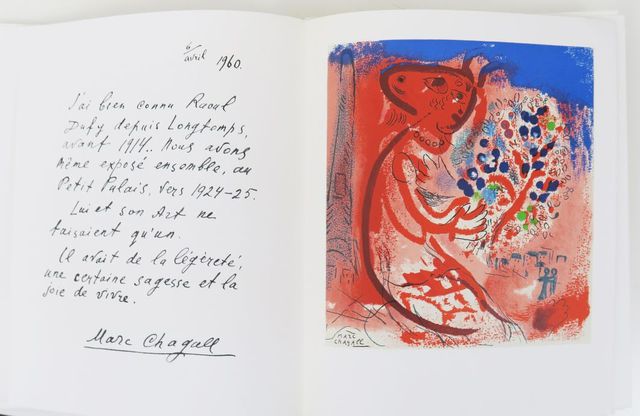 6/avril 1960.
J'ai bien connu Raoul
Dufy depuis Longtemps,
avant 1914. Nous avons
même exposé ensemble, au
Petit Palais, vers 1924-25.
Lui et son Art ne
faisaient qu'un.
Il avait de la légéreté,
une certaine sagesse et la
joie de vivre.
Marc Chagall
MARC
CHAGALL